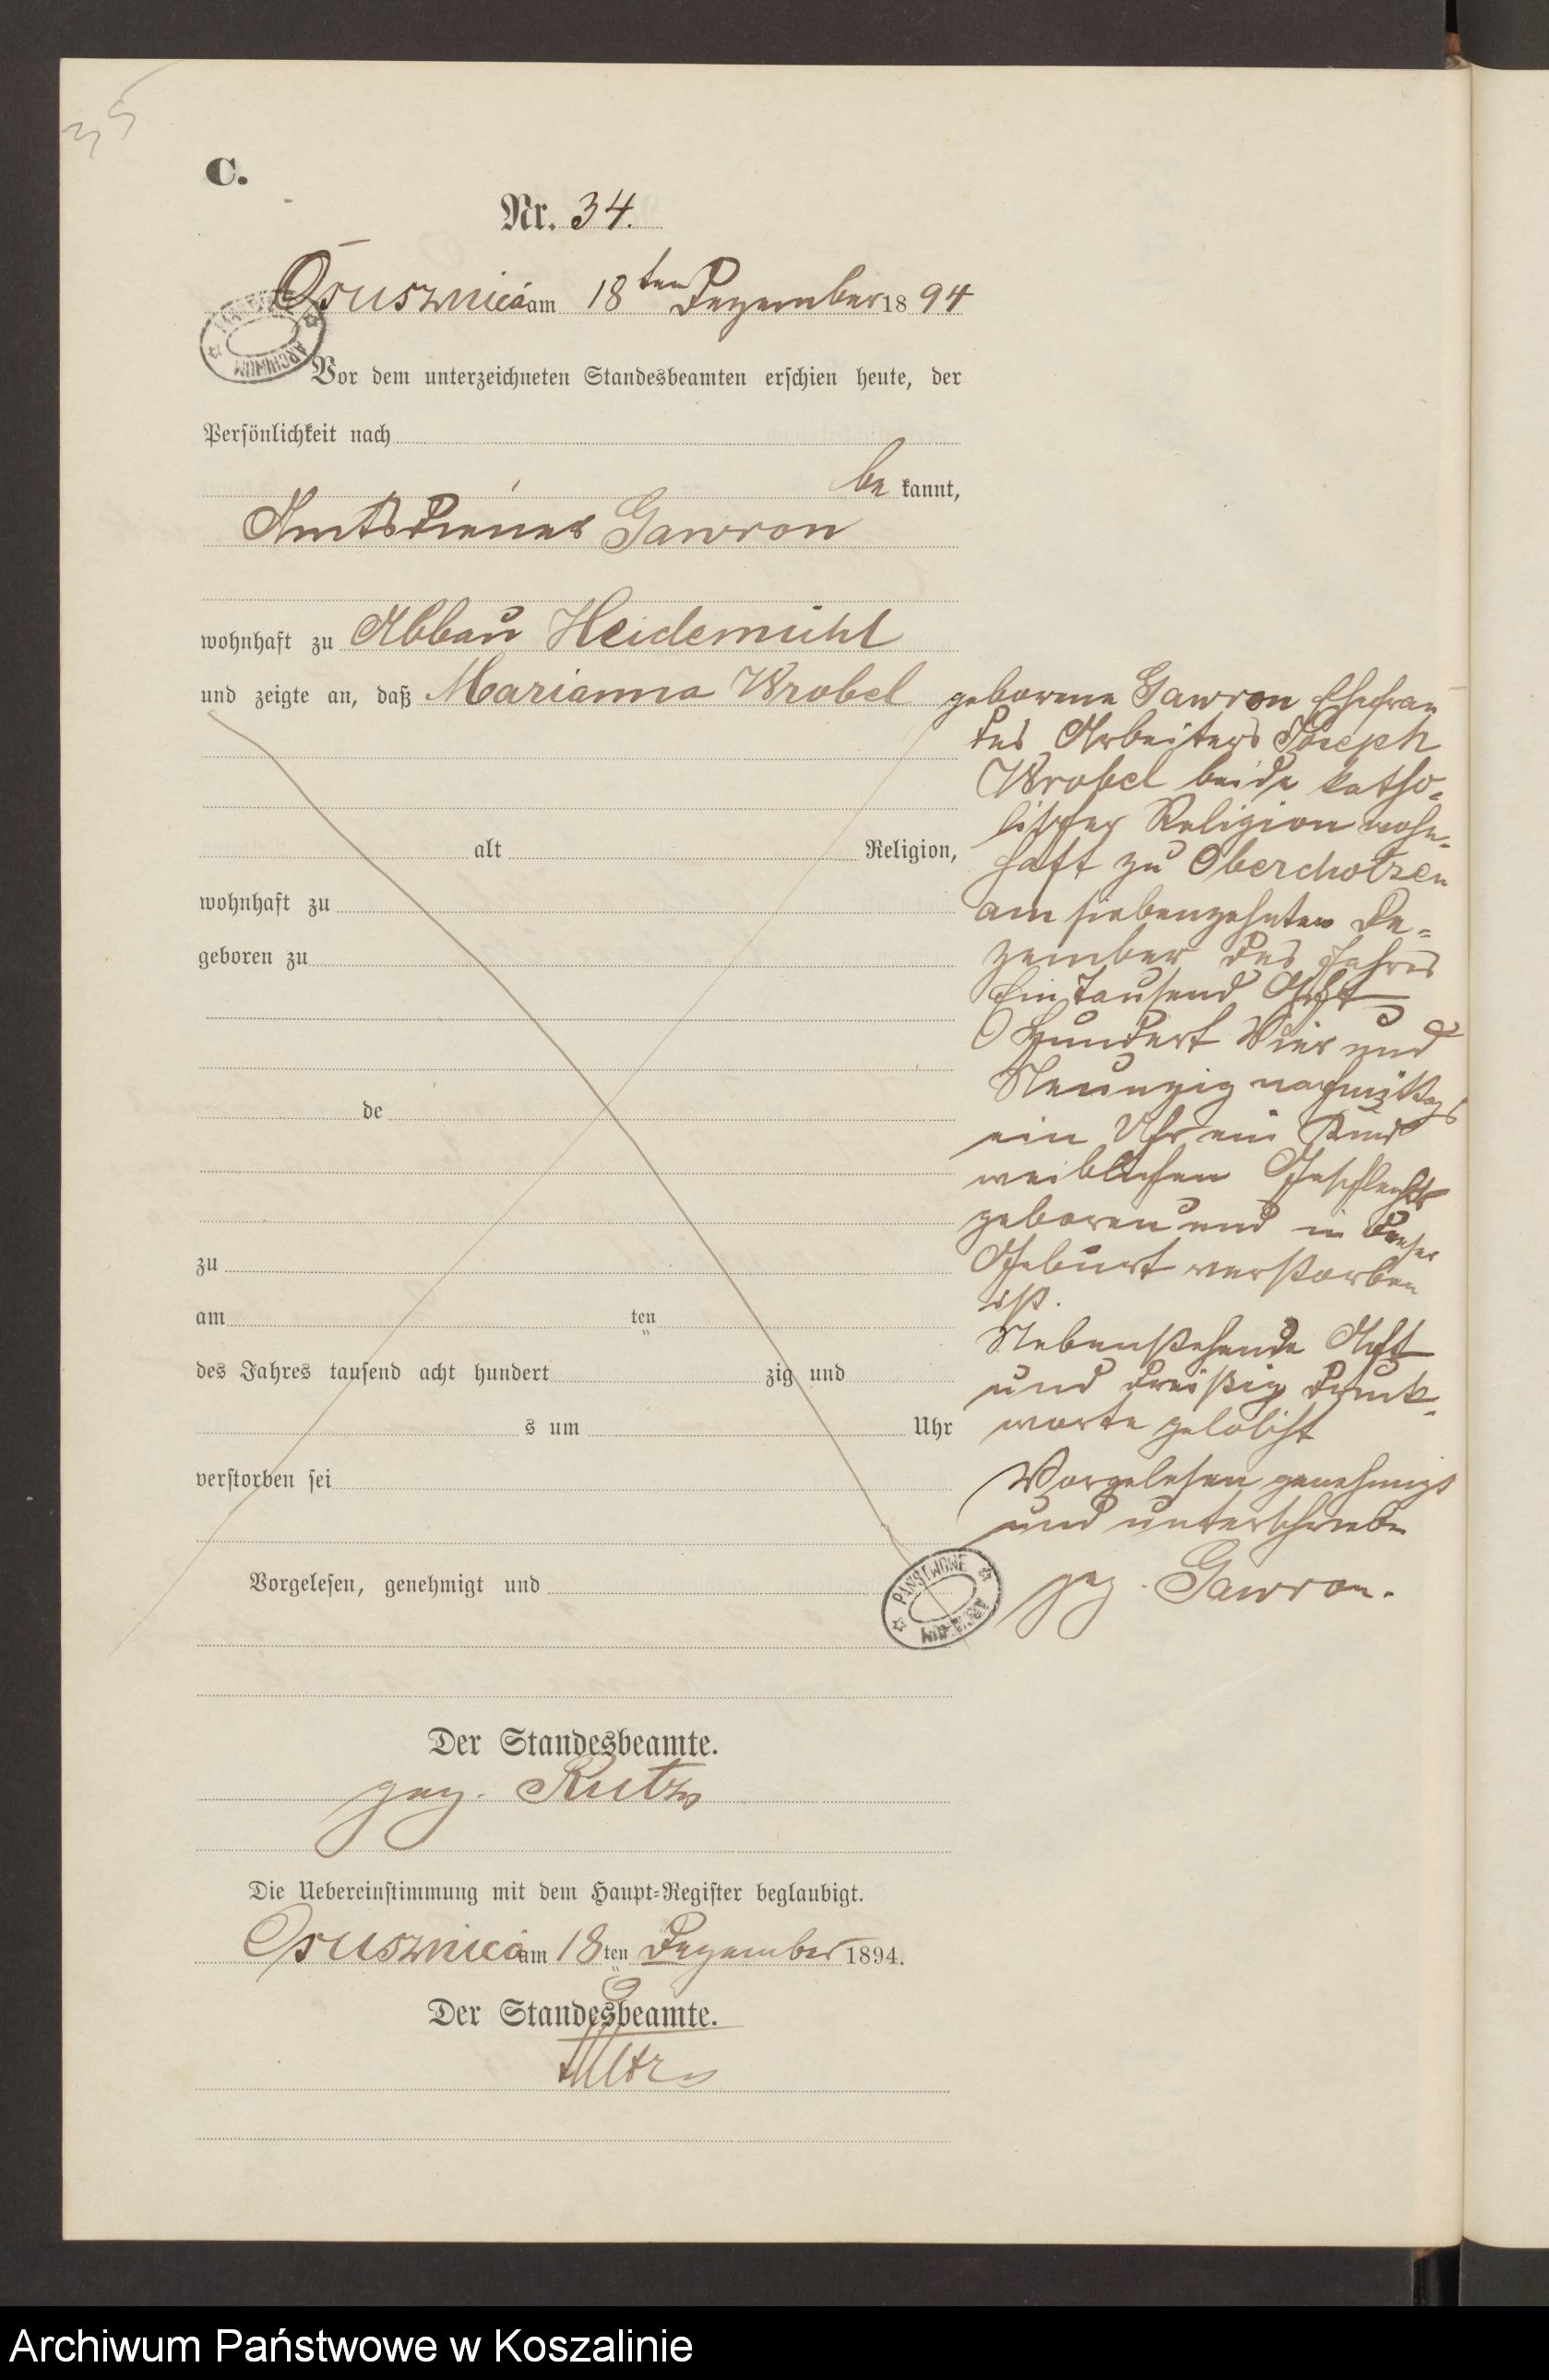 35
C.
Nr. 34.
Osusznica am 18ten Dezember 1894
Vor dem unterzeichneten Standesbeamten erschien heute, der
Persönlichkeit nach
be kannt,
Amtsdiener Gawron
wohnhaft zu Abbau Heidemühl
und zeigte an, daß Marianna Wrobel geborene Gawron Ehefrau
des Arbeiters Joseph
Wrobel beide katho-
lischer Religion wohn-
haft zu Oberchotzen
am siebenzehnten De-
zember des Jahres
Ein Tausend Acht
Hundert Vier und
Neunzig nachmittags
ein Uhr ein Kind
weiblichen Geschlechts
geboren und in
Geburt verstorben
ist.
Nebenstehende Acht
und dreißig Druck-
worte gelöscht
Vorgelesen genehmigt
und unterschrieben
gez. Gawron.
alt Religion,
wohnhaft zu
geboren zu
de
zu
am ten
des Jahres tausend acht hundert zig und
s um Uhr
verstorben sei
Vorgelesen, genehmigt und
PAŃSTWOWE ARCHIWUM
Der Standesbeamte.
gez. Kutz
Die Uebereinstimmung mit dem Haupt-Register beglaubigt.
Osusznica am 18ten Dezember 1894.
Der Standesbeamte.
Archiwum Państwowe w Koszalinie